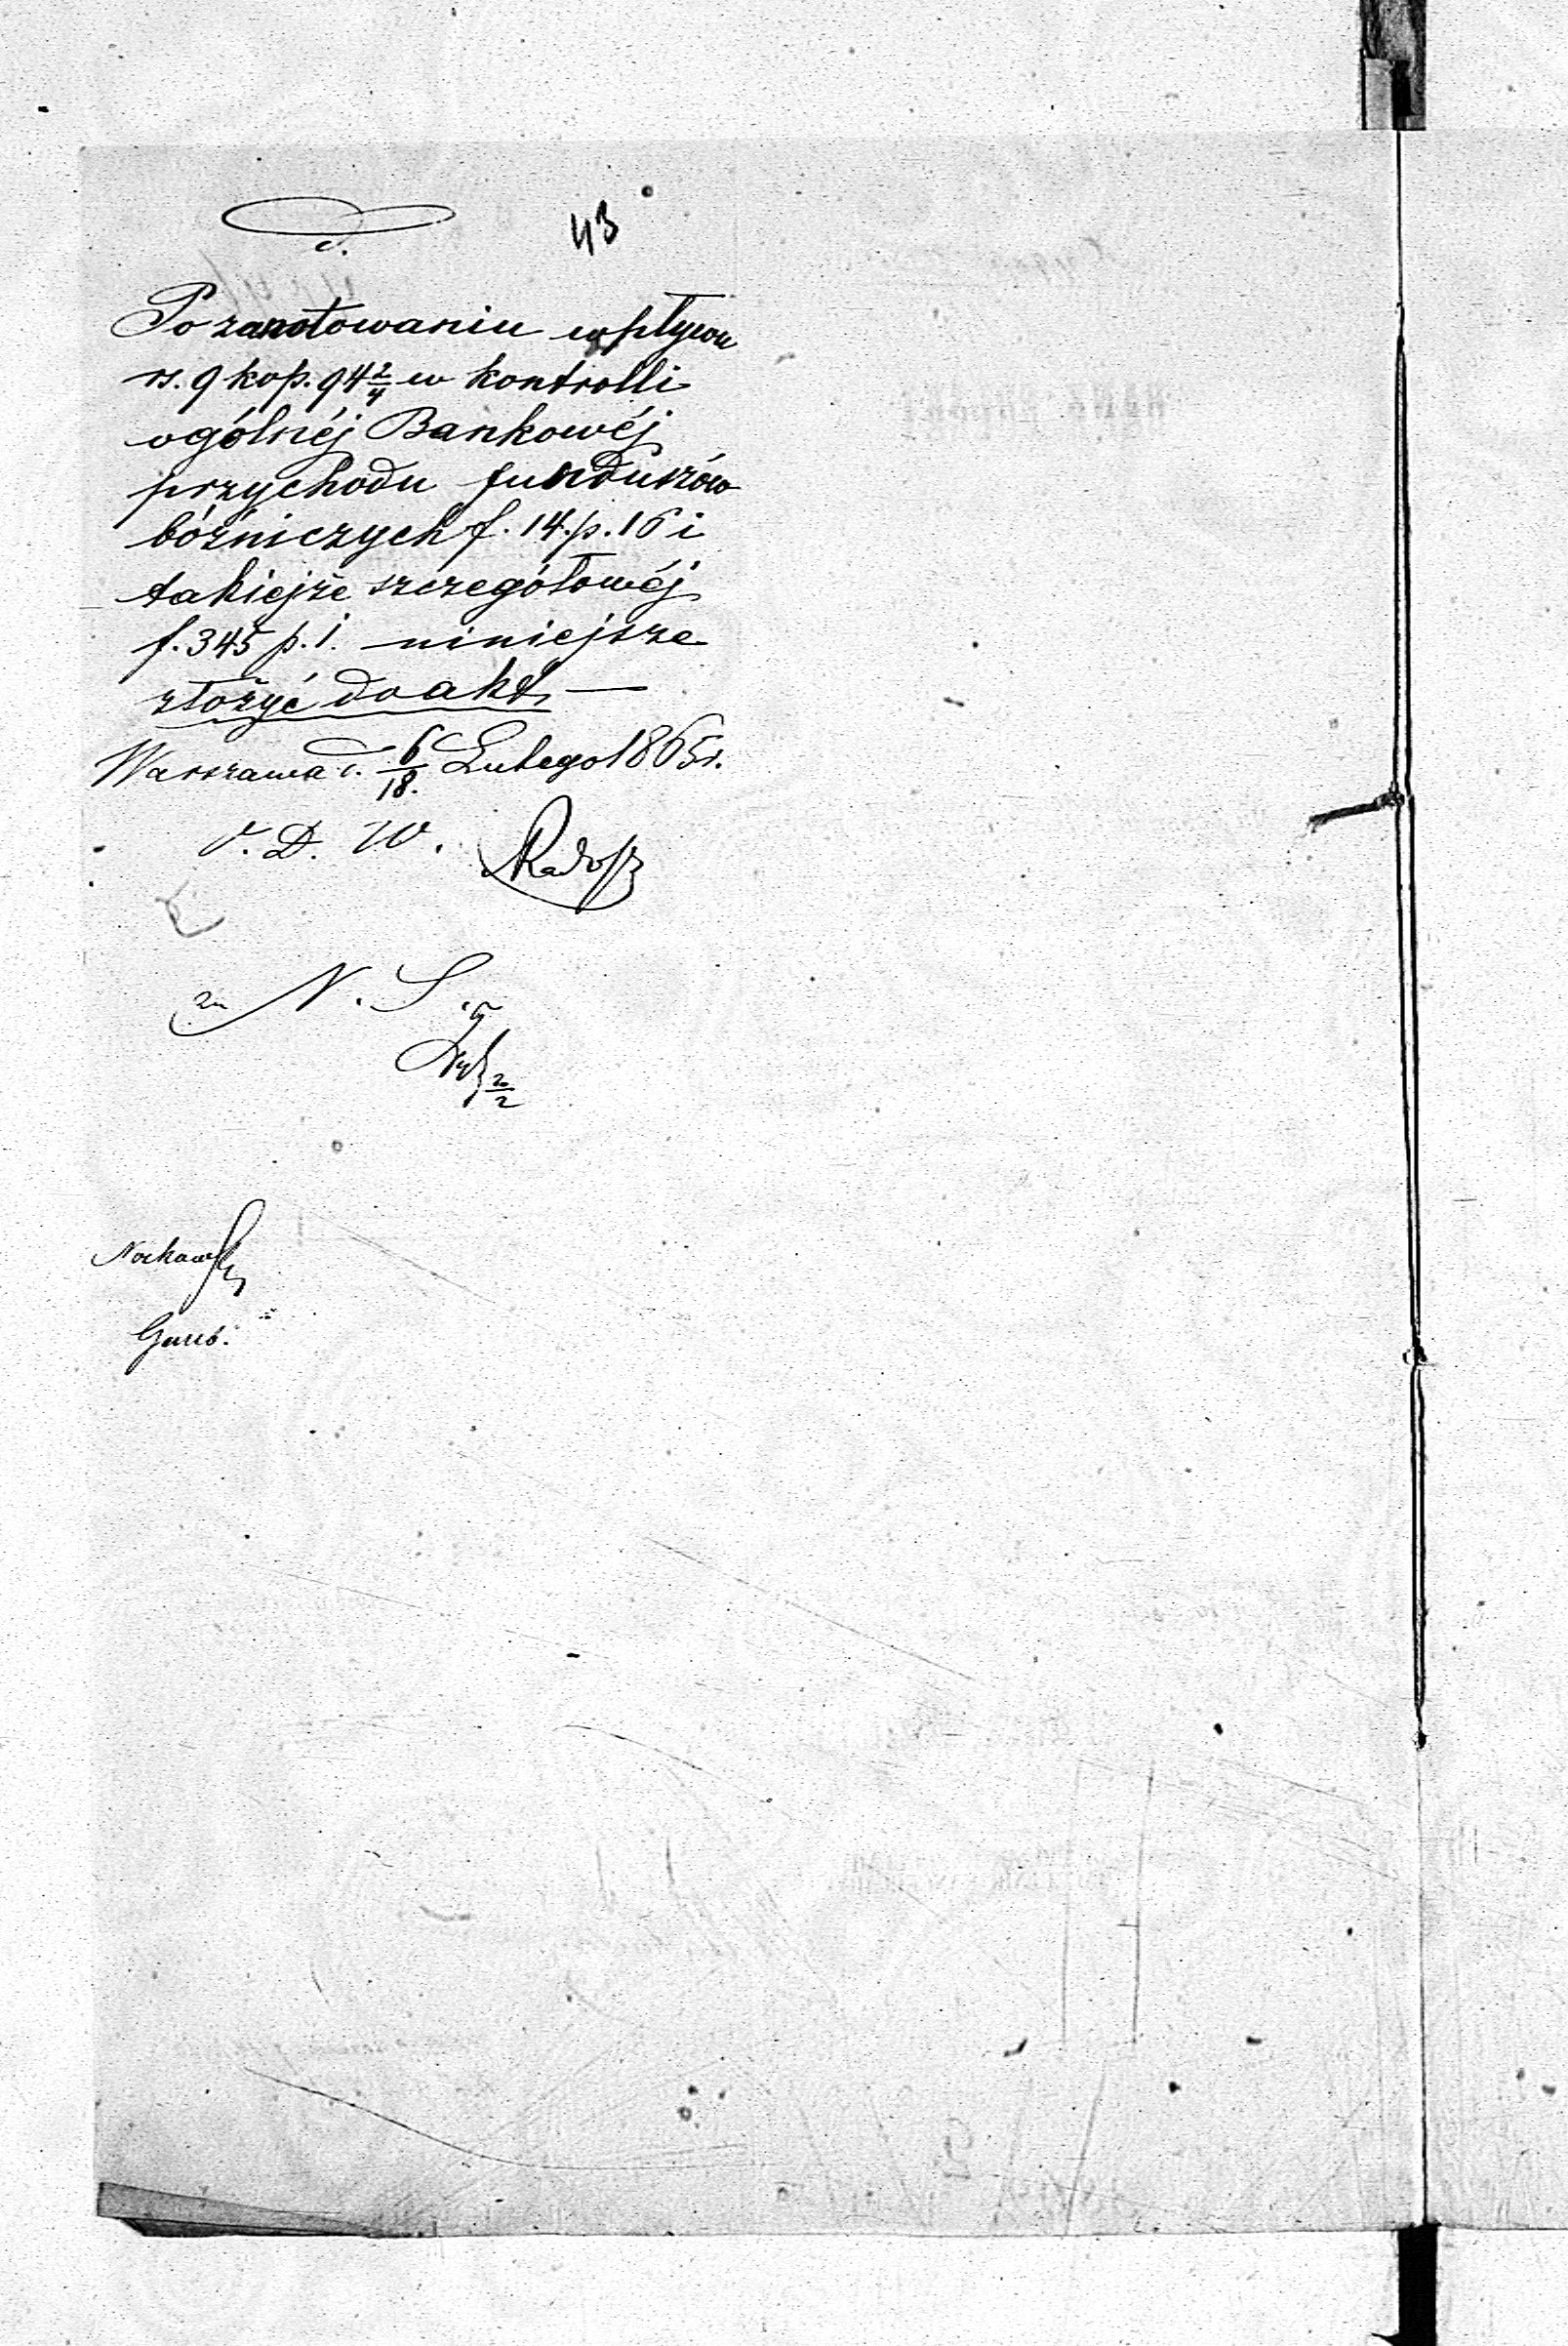 d.
43
Po zanotowaniu wpływu
rs. 9 kop. 94 2/4 w kontrolli
ogólnéj Bankowéj
przychodu funduszów
bóżniczych f. 14. p. 16 i
takiejże szczegółowéj
f. 345 p. 1. niniejsze
złożyć do akt. —
Warszawa d. 6/18. Lutego 1865 r.
V. D. W.
za N. S.